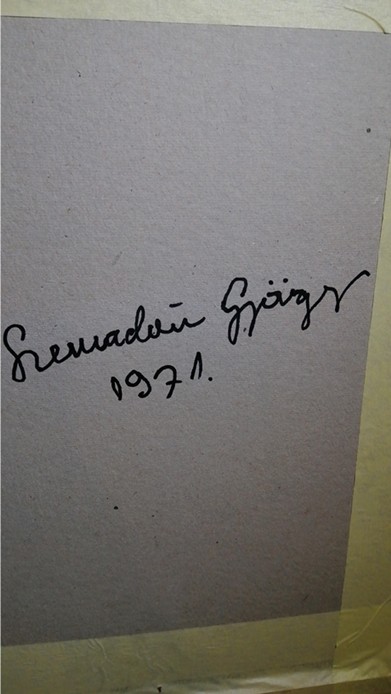 Szemadám György
1971.